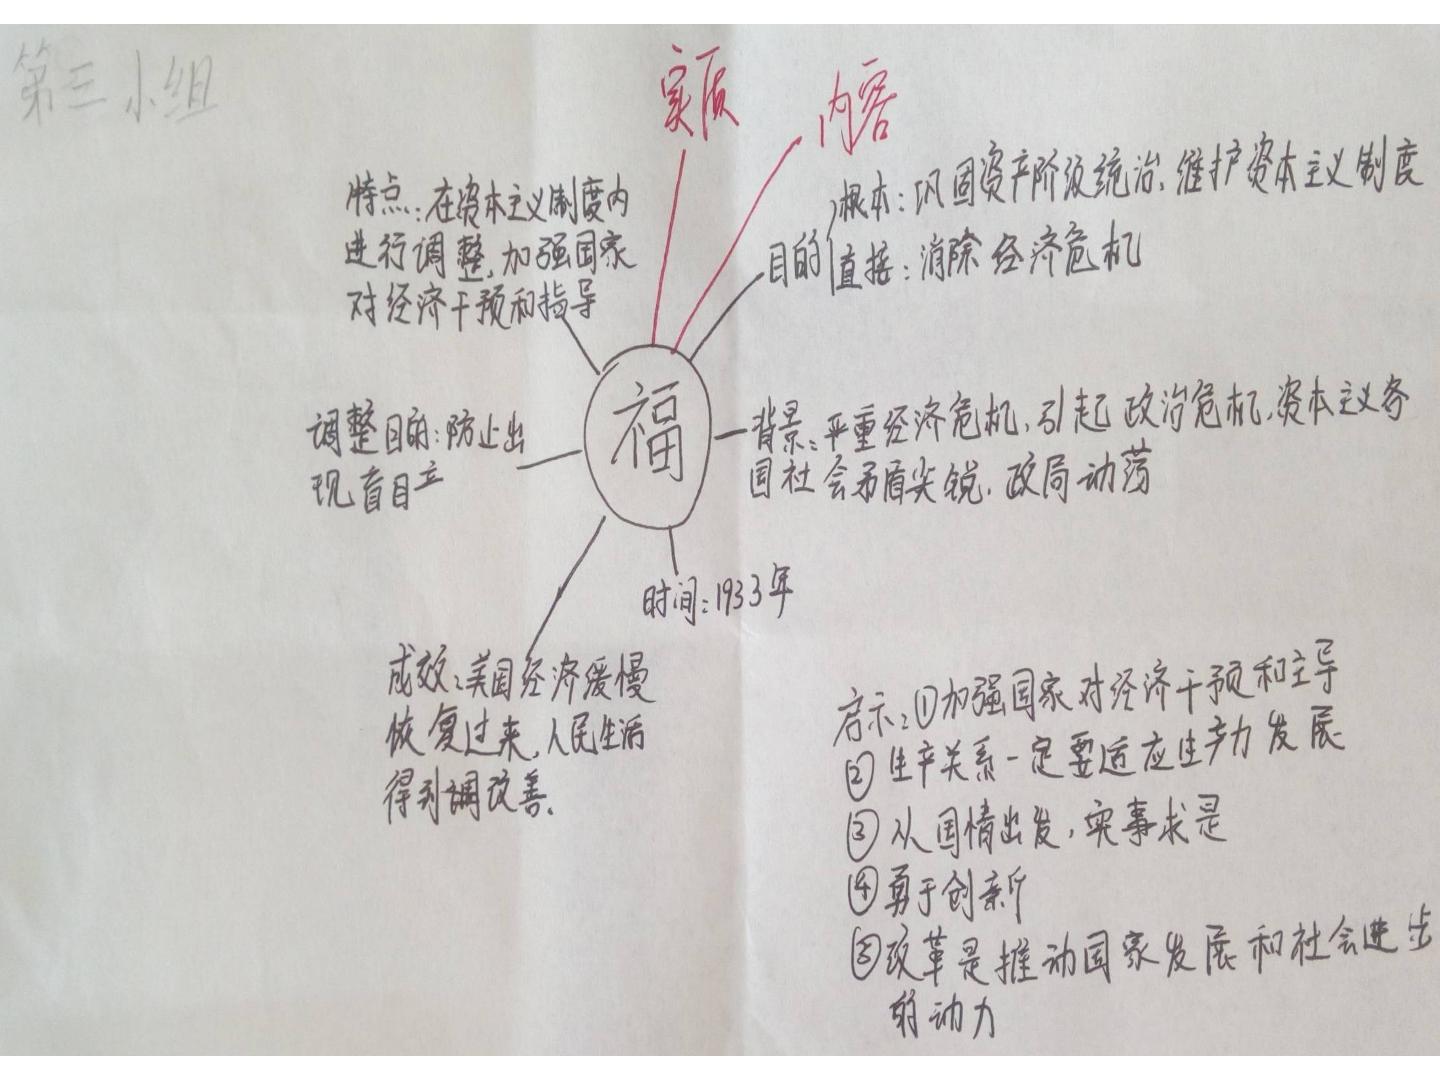 第三小组
实质
内容
特点：在资本主义制度内
进行调整，加强国家
对经济干预和指导
目的
根本：巩固资产阶级统治，维护资本主义制度
直接：消除经济危机
福
调整目的：防止出
现盲目立
背景：严重经济危机，引起政治危机，资本主义各
国社会矛盾尖锐，政局动荡
时间：1933年
成效：美国经济缓慢
恢复过来，人民生活
得到调改善.
启示：①加强国家对经济干预和主导
②生产关系一定要适应生产力发展
③从国情出发，实事求是
④勇于创新
⑤改革是推动国家发展和社会进步
的动力